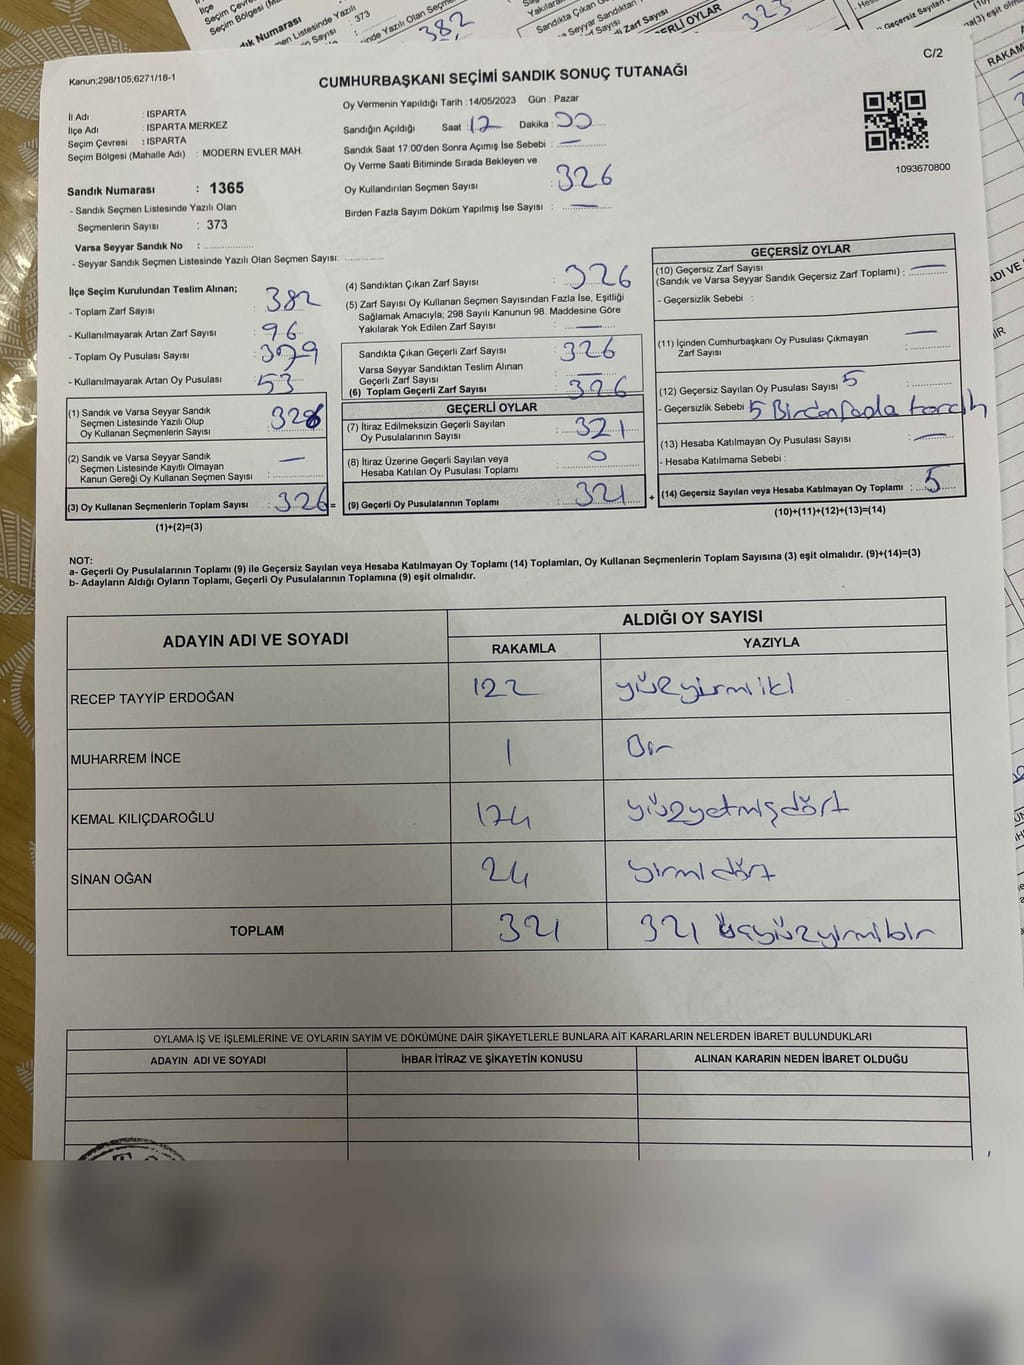 Kanun;298/105;6271/18-1
C/2
CUMHURBAŞKANI SEÇİMİ SANDIK SONUÇ TUTANAĞI
İl Adı : ISPARTA
İlçe Adı : ISPARTA MERKEZ
Seçim Çevresi : ISPARTA
Seçim Bölgesi (Mahalle Adı) : MODERN EVLER MAH.
Sandık Numarası : 1365
- Sandık Seçmen Listesinde Yazılı Olan
Seçmenlerin Sayısı : 373
Varsa Seyyar Sandık No :
- Seyyar Sandık Seçmen Listesinde Yazılı Olan Seçmen Sayısı:
Oy Vermenin Yapıldığı Tarih : 14/05/2023 Gün : Pazar
Sandığın Açıldığı Saat : 17 Dakika : 00
Sandık Saat 17:00'den Sonra Açımış İse Sebebi : —
Oy Verme Saati Bitiminde Sırada Bekleyen ve
Oy Kullandırılan Seçmen Sayısı : 326
Birden Fazla Sayım Döküm Yapılmış İse Sayısı : —
1093670800
İlçe Seçim Kurulundan Teslim Alınan;
- Toplam Zarf Sayısı : 382
- Kullanılmayarak Artan Zarf Sayısı : 96
- Toplam Oy Pusulası Sayısı : 379
- Kullanılmayarak Artan Oy Pusulası : 53
(1) Sandık ve Varsa Seyyar Sandık
Seçmen Listesinde Yazılı Olup
Oy Kullanan Seçmenlerin Sayısı : 326
(2) Sandık ve Varsa Seyyar Sandık
Seçmen Listesinde Kayıtlı Olmayan
Kanun Gereği Oy Kullanan Seçmen Sayısı : —
(3) Oy Kullanan Seçmenlerin Toplam Sayısı : 326
(1)+(2)=(3)
(4) Sandıktan Çıkan Zarf Sayısı : 326
(5) Zarf Sayısı Oy Kullanan Seçmen Sayısından Fazla İse, Eşitliği
Sağlamak Amacıyla; 298 Sayılı Kanunun 98. Maddesine Göre
Yakılarak Yok Edilen Zarf Sayısı : —
Sandıkta Çıkan Geçerli Zarf Sayısı : 326
Varsa Seyyar Sandıktan Teslim Alınan
Geçerli Zarf Sayısı : —
(6) Toplam Geçerli Zarf Sayısı : 326
=
GEÇERLİ OYLAR
(7) İtiraz Edilmeksizin Geçerli Sayılan
Oy Pusulalarının Sayısı : 321
(8) İtiraz Üzerine Geçerli Sayılan veya
Hesaba Katılan Oy Pusulası Toplamı : 0
(9) Geçerli Oy Pusulalarının Toplamı : 321
+
GEÇERSİZ OYLAR
(10) Geçersiz Zarf Sayısı
(Sandık ve Varsa Seyyar Sandık Geçersiz Zarf Toplamı) : —
- Geçersizlik Sebebi :
(11) İçinden Cumhurbaşkanı Oy Pusulası Çıkmayan
Zarf Sayısı : —
(12) Geçersiz Sayılan Oy Pusulası Sayısı : 5
- Geçersizlik Sebebi : 5 Birden fazla tercih
(13) Hesaba Katılmayan Oy Pusulası Sayısı : —
- Hesaba Katılmama Sebebi :
(14) Geçersiz Sayılan veya Hesaba Katılmayan Oy Toplamı : 5
(10)+(11)+(12)+(13)=(14)
NOT:
a- Geçerli Oy Pusulalarının Toplamı (9) ile Geçersiz Sayılan veya Hesaba Katılmayan Oy Toplamı (14) Toplamları, Oy Kullanan Seçmenlerin Toplam Sayısına (3) eşit olmalıdır. (9)+(14)=(3)
b- Adayların Aldığı Oyların Toplamı, Geçerli Oy Pusulalarının Toplamına (9) eşit olmalıdır.
ADAYIN ADI VE SOYADI ALDIĞI OY SAYISI
RAKAMLA YAZIYLA
RECEP TAYYİP ERDOĞAN 122 yüzyirmiiki
MUHARREM İNCE 1 Bir
KEMAL KILIÇDAROĞLU 174 yüzyetmişdört
SİNAN OĞAN 24 yirmidört
TOPLAM 321 321 üçyüzyirmibir
OYLAMA İŞ VE İŞLEMLERİNE VE OYLARIN SAYIM VE DÖKÜMÜNE DAİR ŞİKAYETLERLE BUNLARA AİT KARARLARIN NELERDEN İBARET BULUNDUKLARI
ADAYIN ADI VE SOYADI İHBAR İTİRAZ VE ŞİKAYETİN KONUSU ALINAN KARARIN NEDEN İBARET OLDUĞU